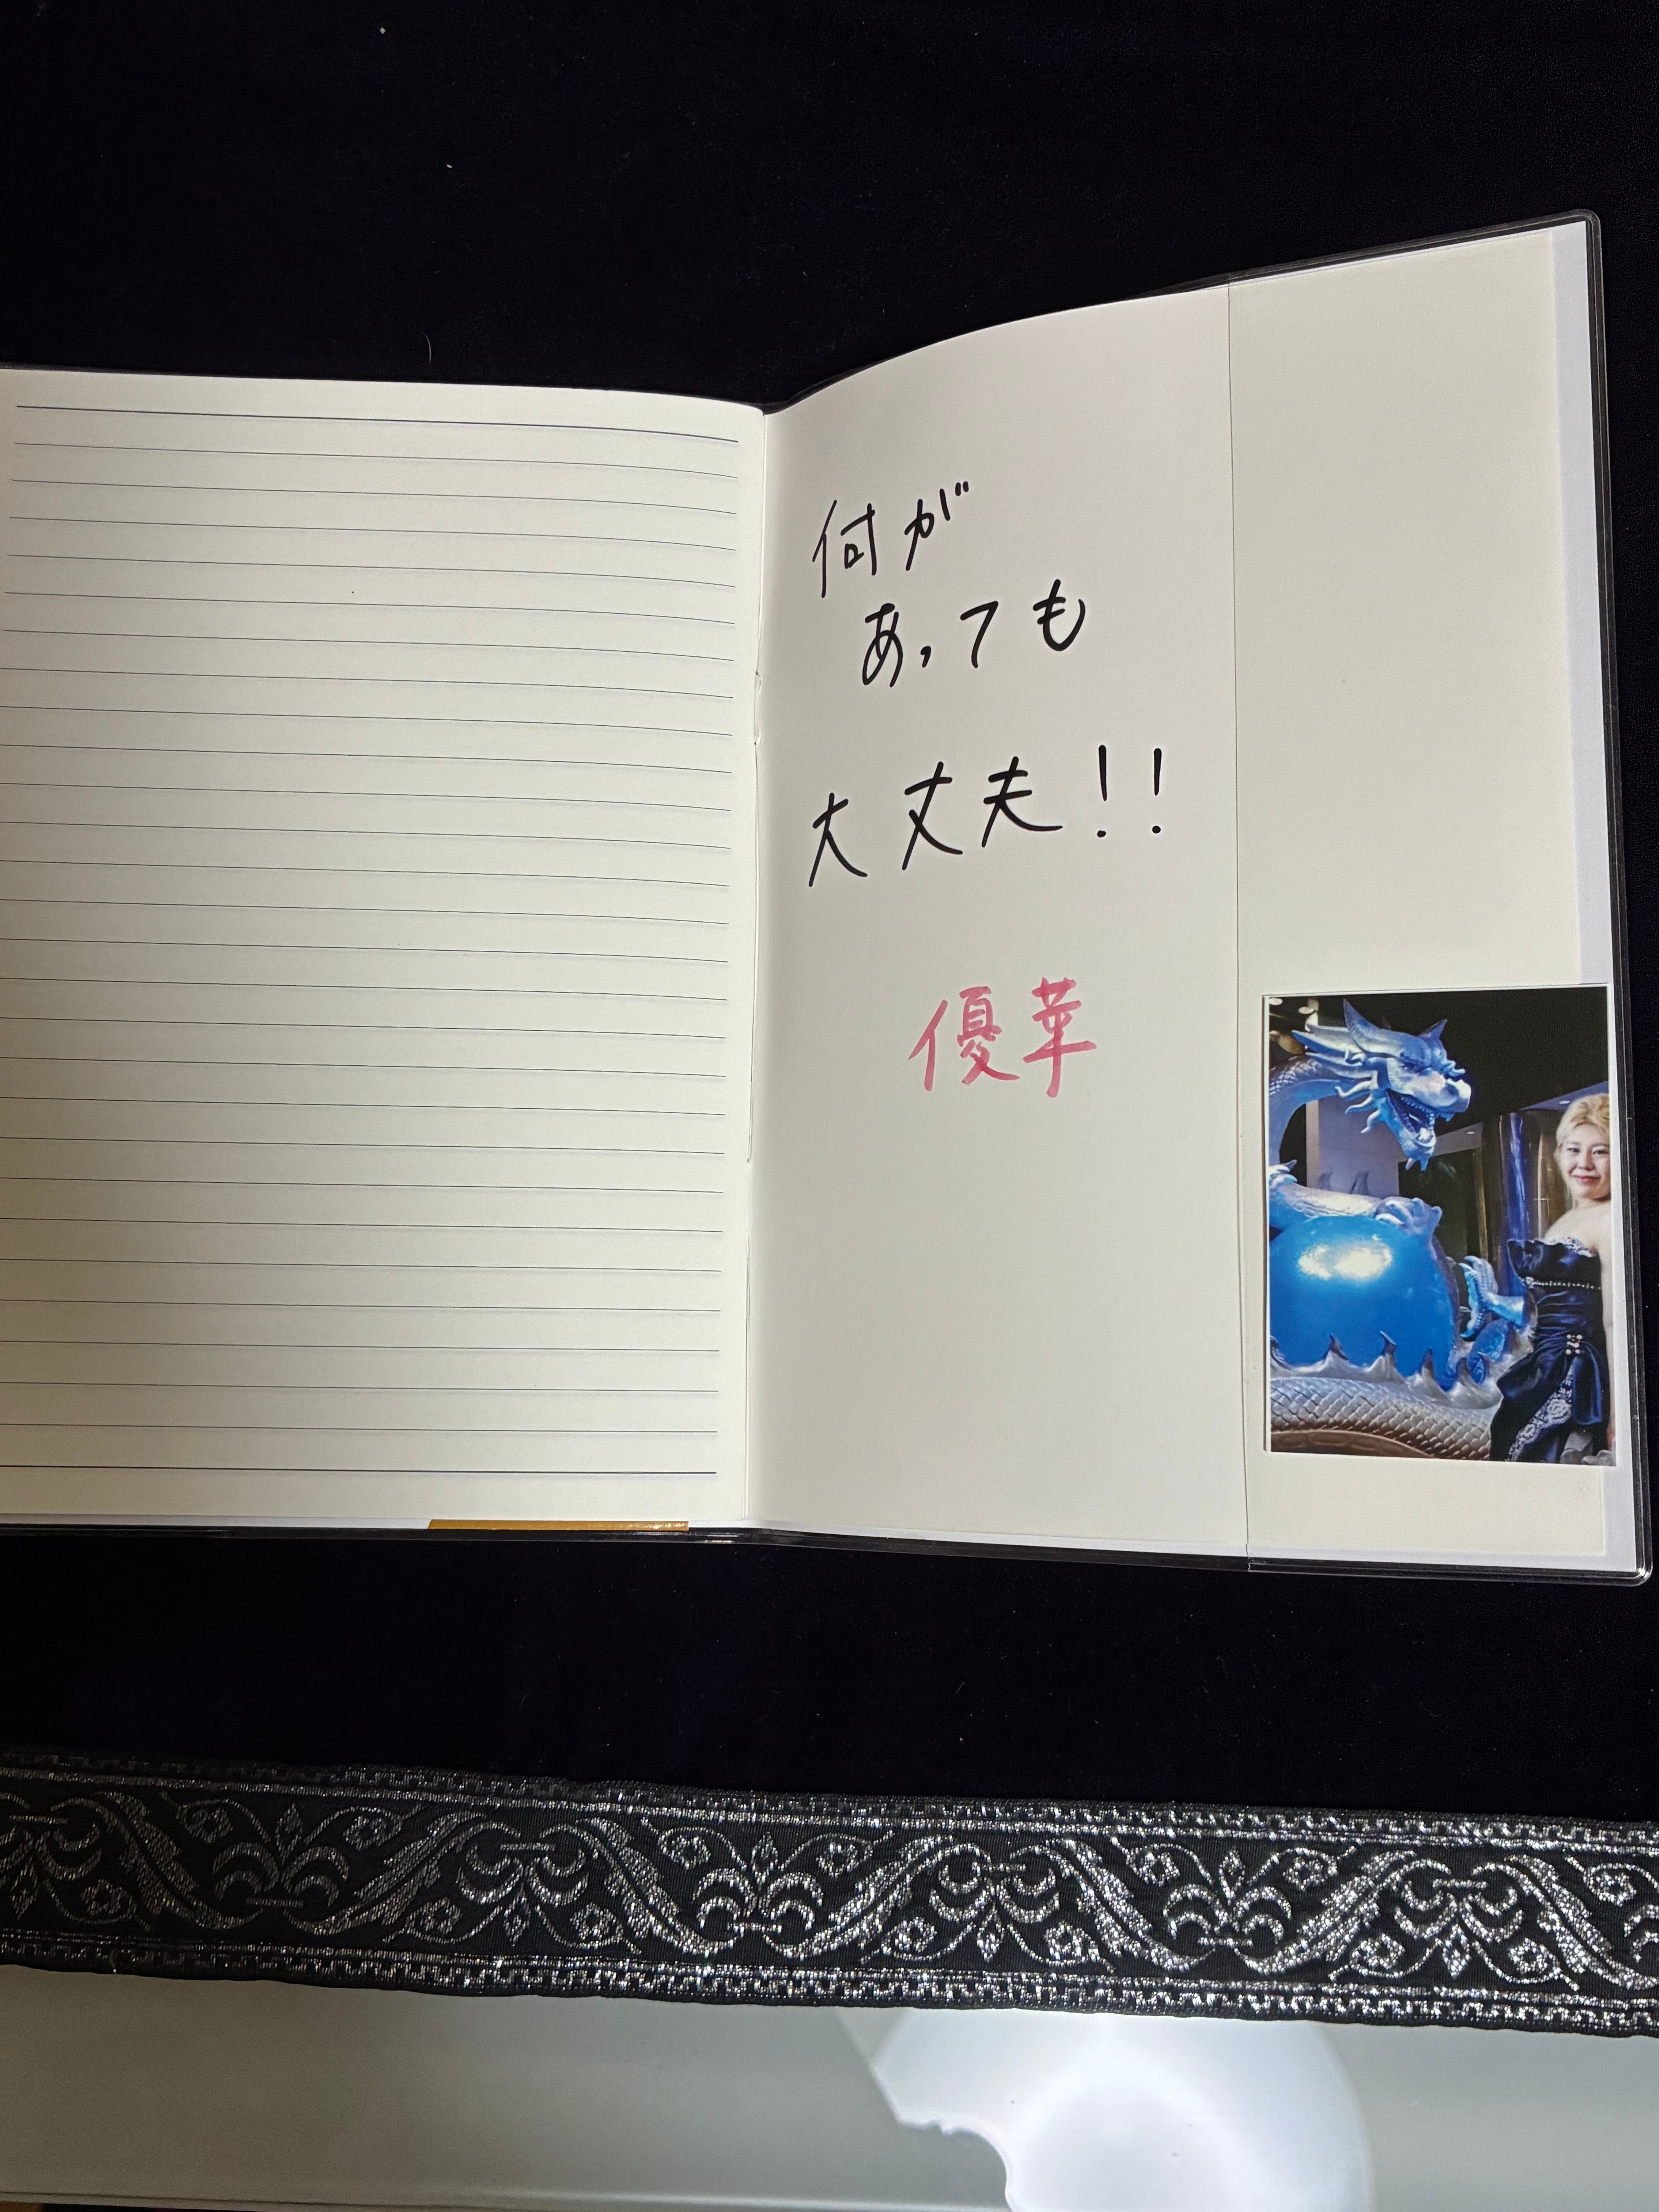 何が
あっても
大丈夫!!
優華